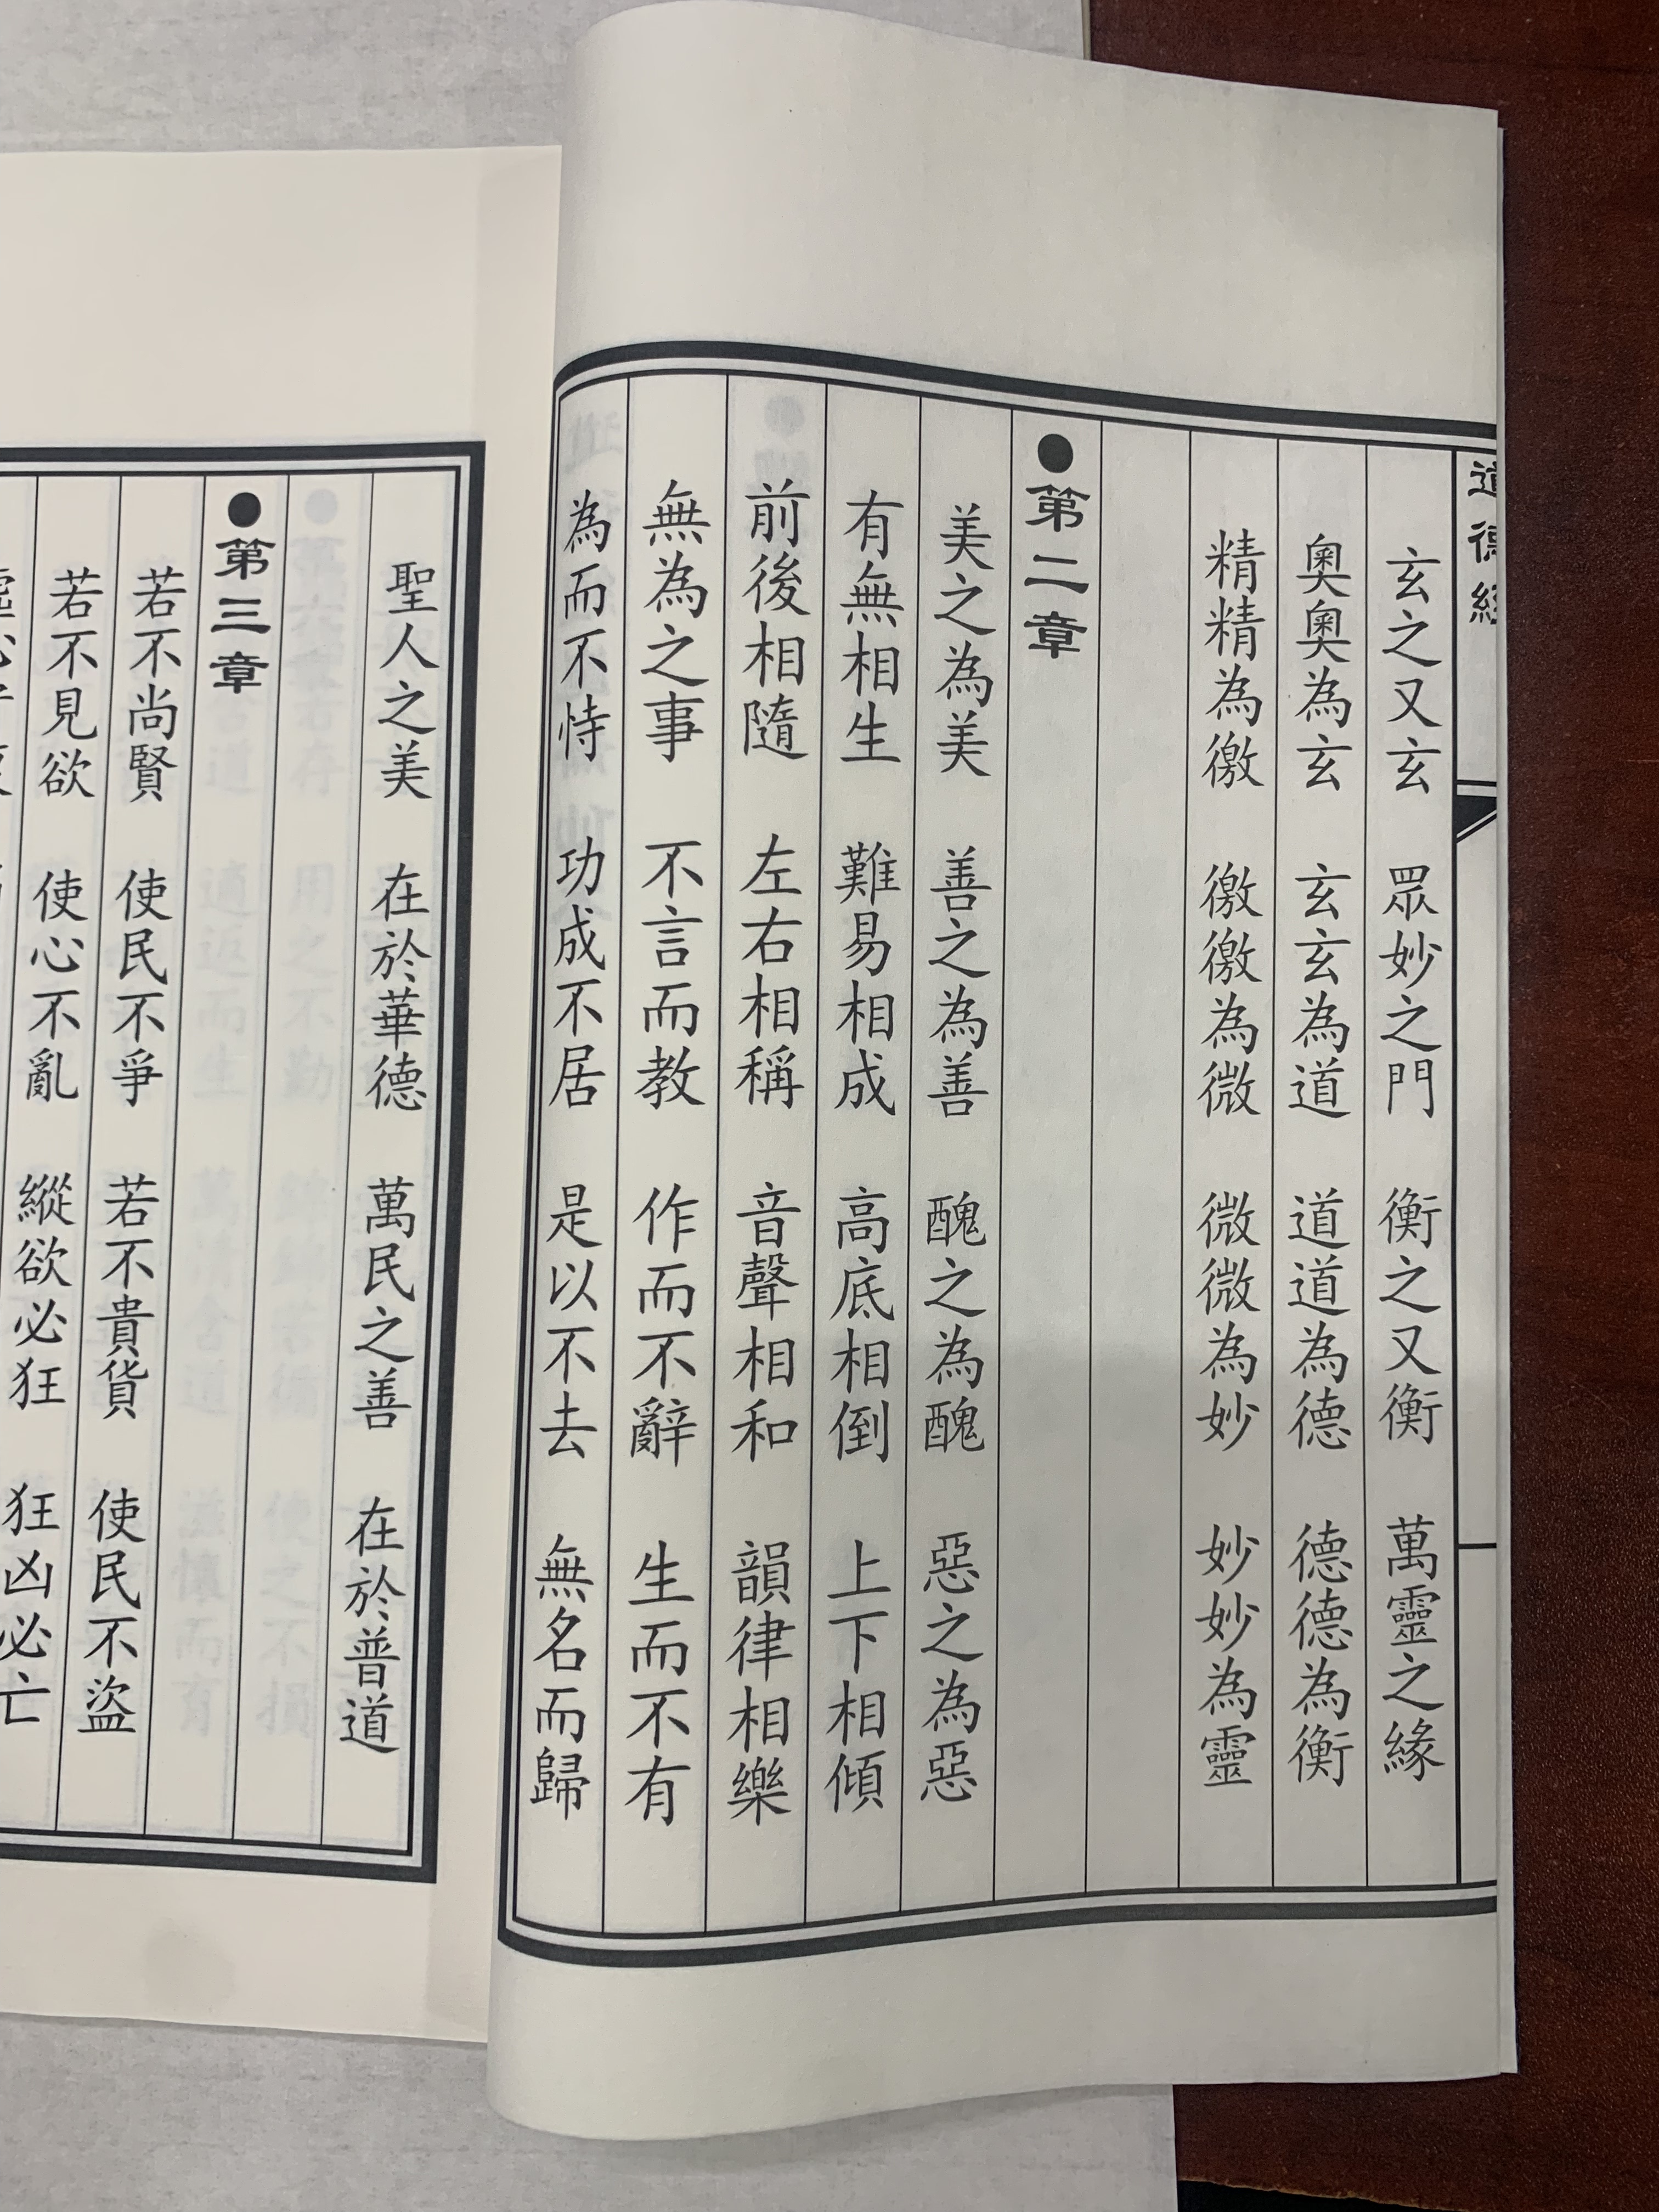 道德經
玄之又玄 眾妙之門 衡之又衡 萬靈之緣
奧奧為玄 玄玄為道 道道為德 德德為衡
精精為徼 徼徼為微 微微為妙 妙妙為靈
●第二章
美之為美 善之為善 醜之為醜 惡之為惡
有無相生 難易相成 高底相倒 上下相傾
前後相隨 左右相稱 音聲相和 韻律相樂
無為之事 不言而教 作而不辭 生而不有
為而不恃 功成不居 是以不去 無名而歸
聖人之美 在於華德 萬民之善 在於普道
●第三章
若不尚賢 使民不爭 若不貴貨 使民不盜
若不見欲 使心不亂 縱欲必狂 狂凶必亡